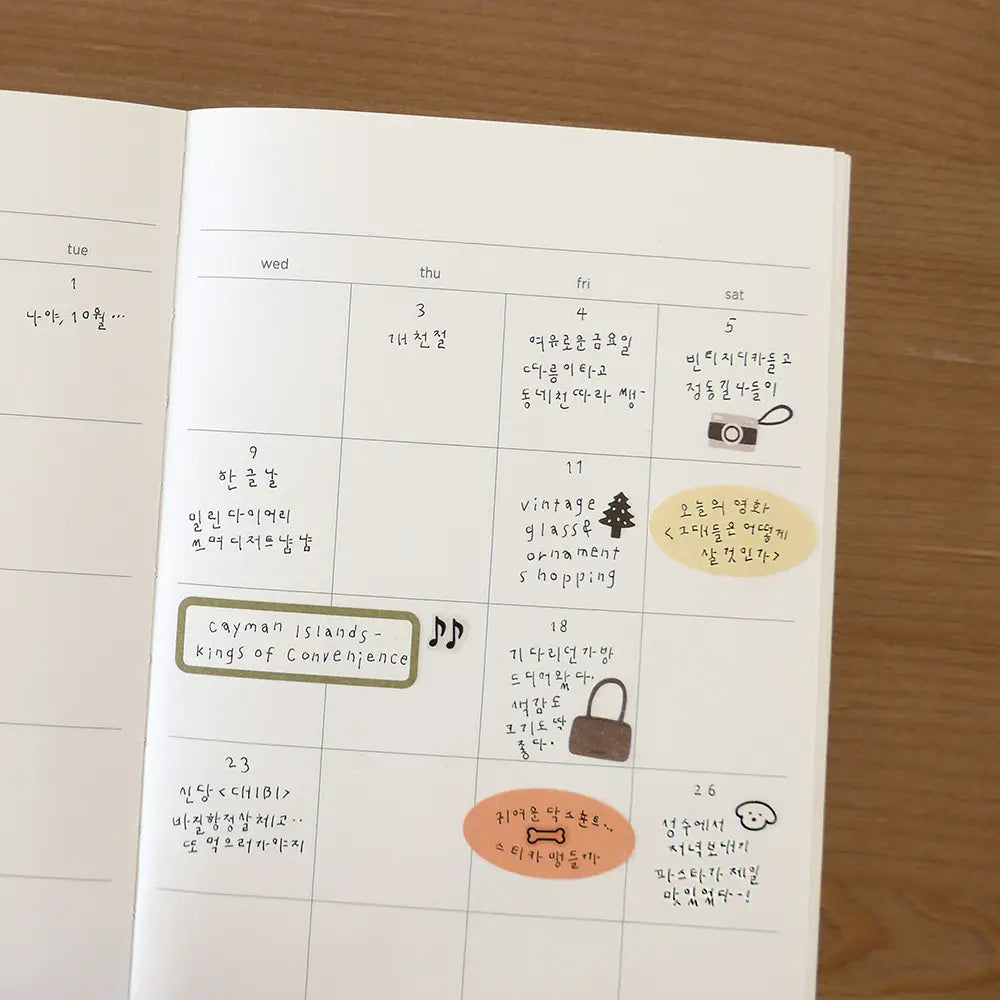 tue
wed
thu
fri
sat
1
나야, 10월...
3
개천절
4
여유로운 금요일
따릉이 타고
동네천 따라 쌩-
5
빈티지 디카 들고
정동길 나들이
9
한글날
밀린 다이어리
쓰며 디저트 냠냠
11
vintage
glass &
ornament
shopping
오늘의 영화
<그대들은 어떻게
살 것인가>
Cayman Islands -
kings of Convenience
18
기다리던 가방
드디어 왔다.
색감도
크기도 딱
좋다.
23
신당 <대1B1>
바질항정살 체고..
또 먹으러 가야지
귀여운 닥스훈트...
스티카 맹들까
26
성수에서
저녁 보내기
파스타가 제일
맛있었다--!